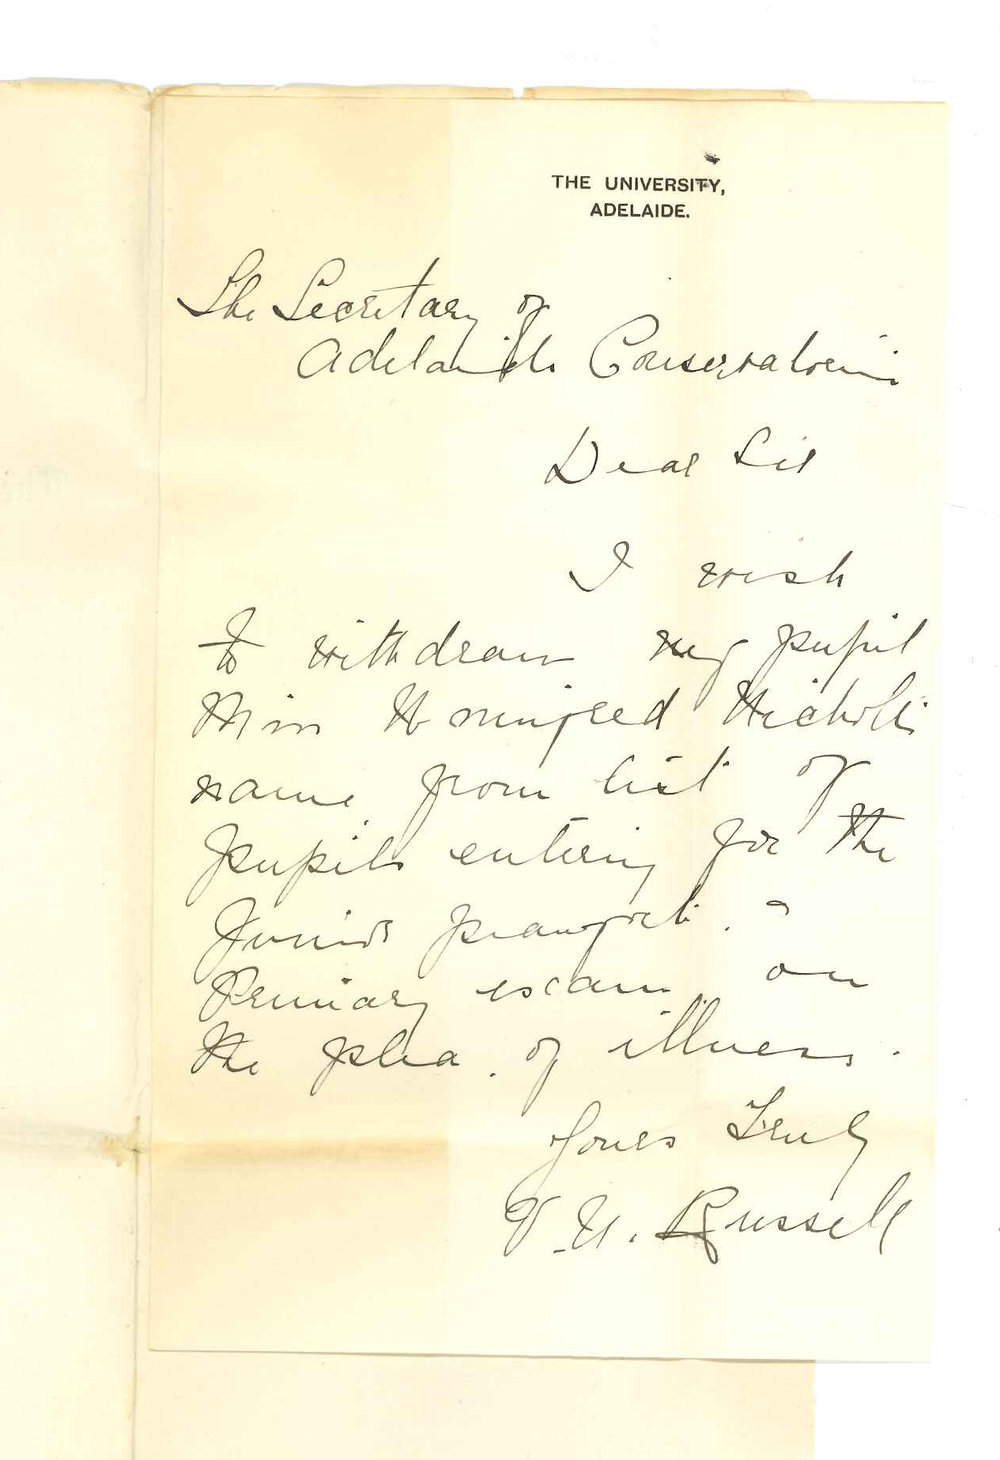 THE UNIVERSITY,
ADELAIDE.
The Secretary of
Adelaide Conservatorium
Dear Sir
I wish
to withdraw my pupil
Miss Winnifred Nicholls
name from list of
pupils entering for the
Junior pianoforte
Primary exam on
the plea of illness.
Yours Truly
Russell